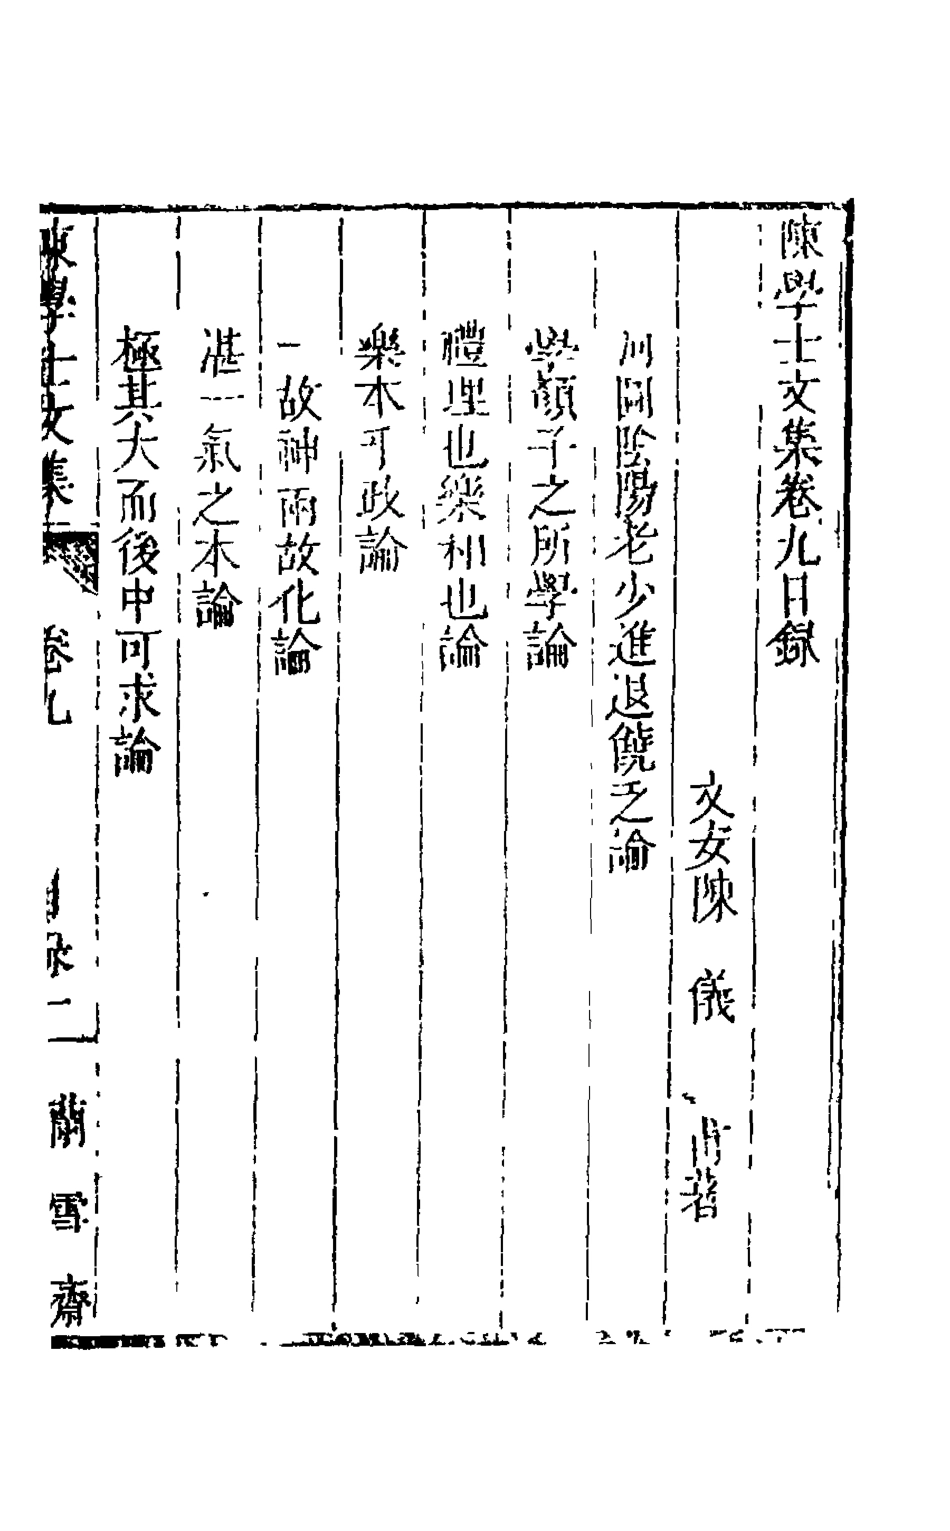 陳學士文集卷九目録
文安陳 儀 著
河圖陰陽老少進退饒乏論
學顔子之所學論
禮理也樂和也論
樂本可政論
一故神兩故化論
湛一氣之本論
極其大而後中可求論
陳學士文集 卷九 目録 二 蘭雪齋